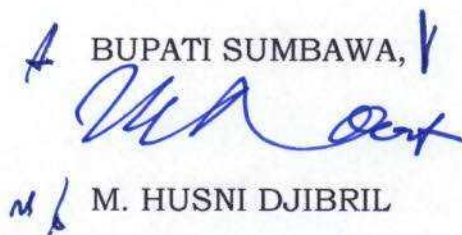 BUPATI SUMBAWA,
M. HUSNI DJIBRIL